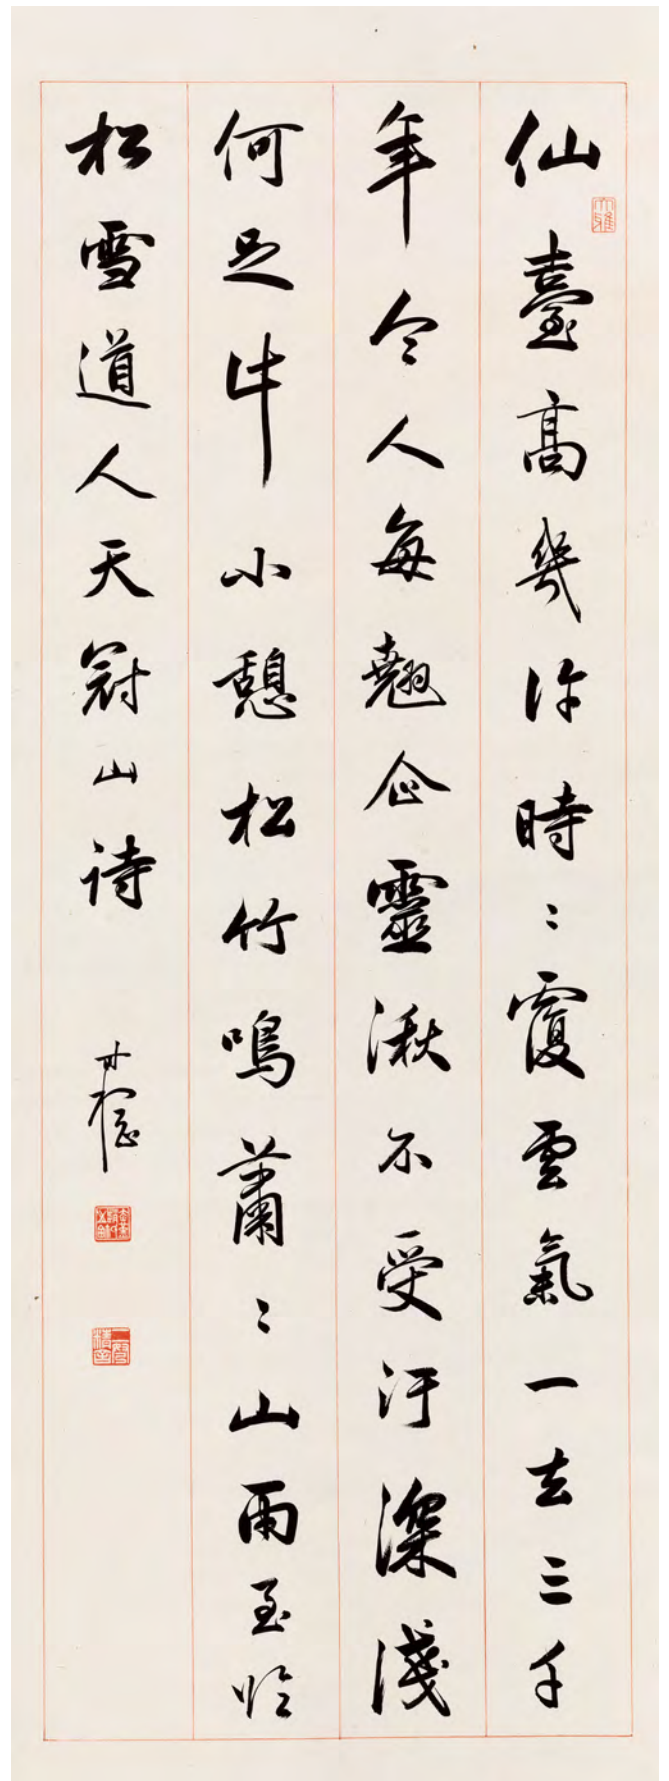 仙臺高幾許時〻覆雲氣一去三千
年令人每翹企靈湫不受汙深淺
何足計小憩松竹鳴蕭〻山雨至臨
松雪道人天冠山詩